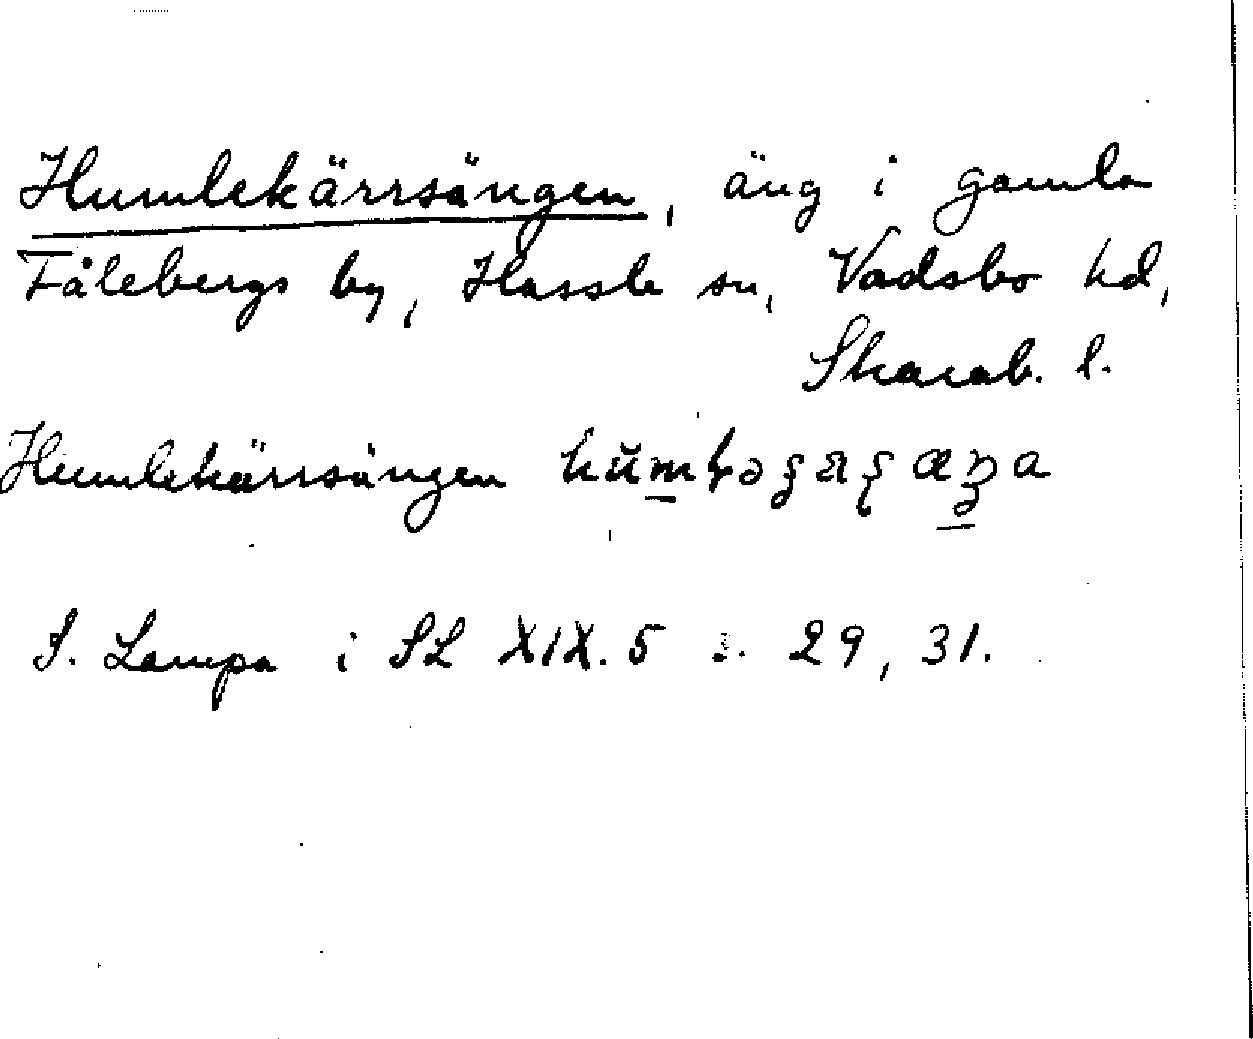 Humlekärrsängen, äng i gamla
Fålebergs by, Hassle sn, Vadsbo hd,
Skarab. l.
Humlekärrsängen
S. Lampa i SL XIX. 5 s. 29, 31.